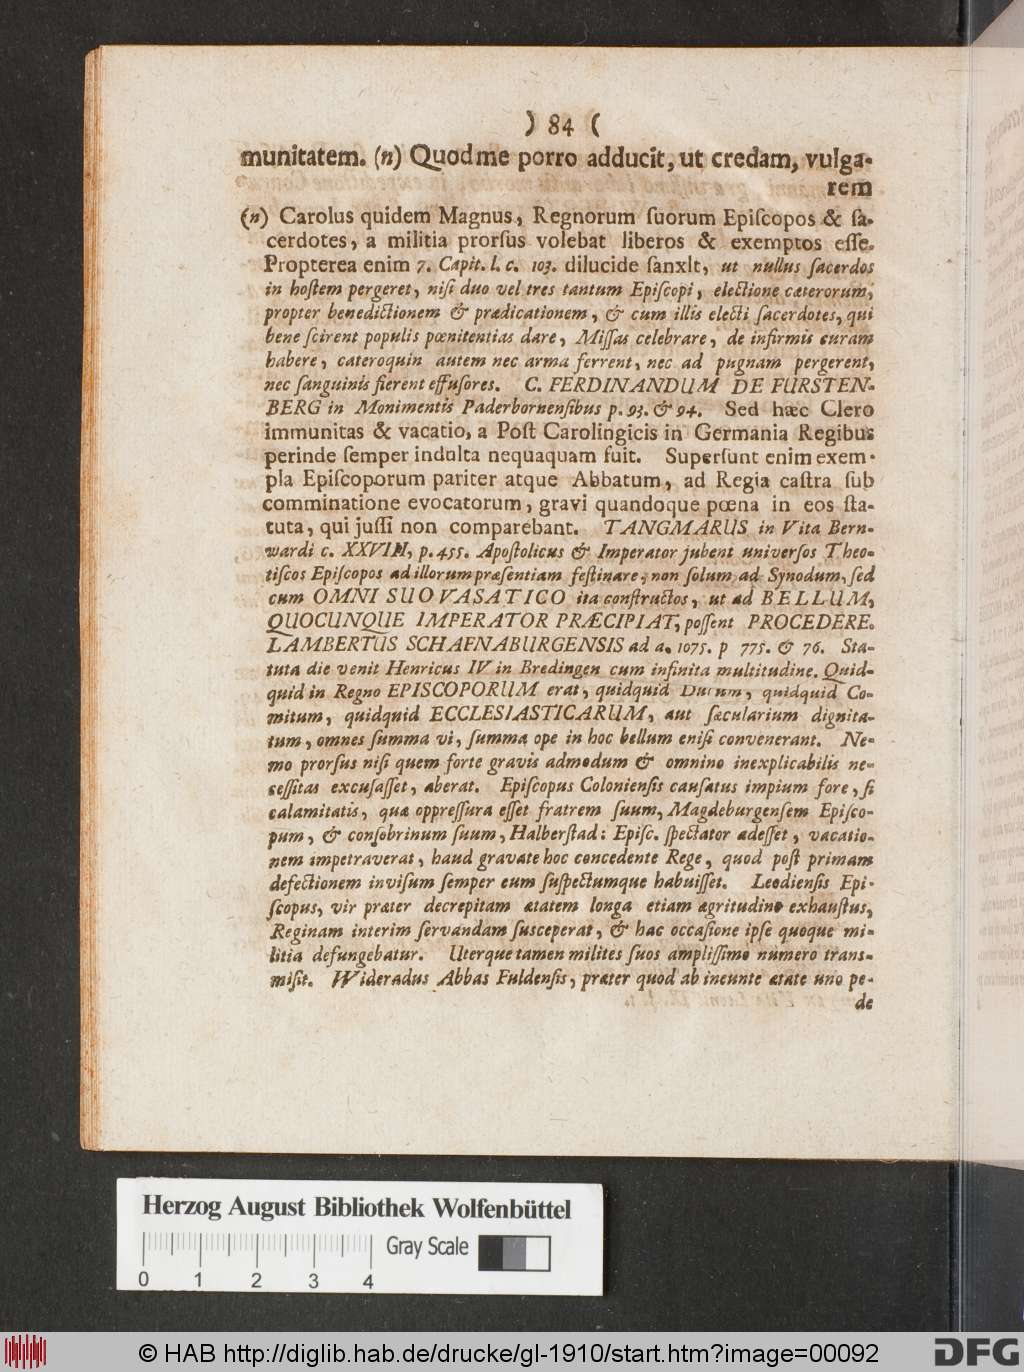 ) 84 (
munitatem. (n) Quod me porro adducit, ut credam, vulga-
rem
(n) Carolus quidem Magnus, Regnorum ſuorum Epiſcopos & ſa-
cerdotes, a militia prorſus volebat liberos & exemptos eſſe.
Propterea enim 7. Capit. l. c. 103. dilucide ſanxit, ut nullus ſacerdos
in hoſtem pergeret, niſi duo vel tres tantum Epiſcopi, electione cæterorum,
propter benedictionem & prædicationem, & cum illis electi ſacerdotes, qui
bene ſcirent populis pœnitentias dare, Miſſas celebrare, de infirmis curam
habere, cateroquin autem nec arma ferrent, nec ad pugnam pergerent,
nec ſanguinis fierent effuſores. C. FERDINANDUM DE FURSTEN-
BERG in Monimentis Paderbornenſibus p. 93. & 94. Sed hæc Clero
immunitas & vacatio, a Poſt Carolingicis in Germania Regibus
perinde ſemper indulta nequaquam fuit. Superſunt enim exem-
pla Epiſcoporum pariter atque Abbatum, ad Regia caſtra ſub
comminatione evocatorum, gravi quandoque pœna in eos ſta-
tuta, qui juſſi non comparebant. TANGMARUS in Vita Bern-
wardi c. XXVIII, p. 455. Apoſtolicus & Imperator jubent univerſos Theo-
tiſcos Epiſcopos ad illorum præſentiam feſtinare, non ſolum ad Synodum, ſed
cum OMNI SUO VASATICO ita conſtructos, ut ad BELLUM,
QUOCUNQUE IMPERATOR PRÆCIPIAT, poſſent PROCEDERE.
LAMBERTUS SCHAFNABURGENSIS ad a. 1075. p 775. & 76. Sta-
tuta die venit Henricus IV in Bredingen cum infinita multitudine. Quid-
quid in Regno EPISCOPORUM erat, quidquid Ducum, quidquid Co-
mitum, quidquid ECCLESIASTICARUM, aut ſæcularium dignita-
tum, omnes ſumma vi, ſumma ope in hoc bellum eniſi convenerant. Ne-
mo prorſus niſi quem forte gravis admodum & omnino inexplicabilis ne-
ceſſitas excuſaſſet, aberat. Epiſcopus Colonienſis cauſatus impium fore, ſi
calamitatis, quæ oppreſſura eſſet fratrem ſuum, Magdeburgenſem Epiſco-
pum, & conſobrinum ſuum, Halberſtad: Epiſc. ſpectator adeſſet, vacatio-
nem impetraverat, haud gravate hoc concedente Rege, quod poſt primam
defectionem inviſum ſemper eum ſuſpectumque habuiſſet. Leodienſis Epi-
ſcopus, vir præter decrepitam ætatem longa etiam ægritudine exhauſtus,
Reginam interim ſervandam ſuſceperat, & hac occaſione ipſe quoque mi-
litia defungebatur. Uterque tamen milites ſuos ampliſſimo numero trans-
miſit. Wideradus Abbas Fuldenſis, præter quod ab ineunte ætate uno pe-
de
Herzog August Bibliothek Wolfenbüttel
Gray Scale
0 1 2 3 4
© HAB http://diglib.hab.de/drucke/gl-1910/start.htm?image=00092
DFG